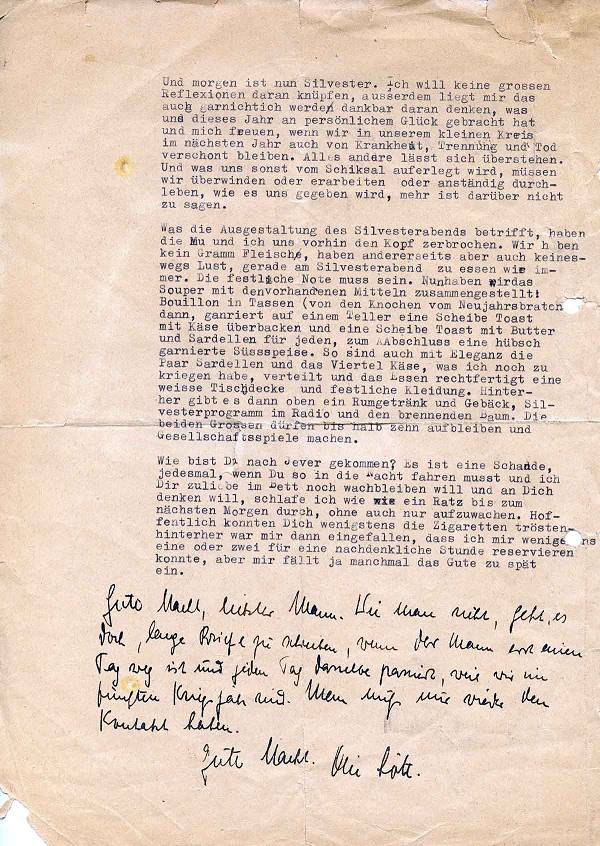 Und morgen ist nun Silvester. Ich will keine grossen
Reflexionen daran knüpfen, ausserdem liegt mir das
auch garnichtich werden dankbar daran denken, was
uns dieses Jahr an persönlichem Glück gebracht hat
und mich freuen, wenn wir in unserem kleinen Kreis
im nächsten Jahr auch von Krankheit, Trennung und Tod
verschont bleiben. Alles andere lässt sich überstehen.
Und was uns sonst vom Schiksal auferlegt wird, müssen
wir überwinden oder erarbeiten oder anständig durch-
leben, wie es uns gegeben wird, mehr ist darüber nicht
zu sagen.
Was die Ausgestaltung des Silvesterabends betrifft, haben
die Mu und ich uns vorhin den Kopf zerbrochen. Wir h ben
kein Gramm Fleisch, haben andererseits aber auch keines-
wegs Lust, gerade am Silvesterabend zu essen wie im-
mer. Die festliche Note muss sein. Nunhaben wirdas
Souper mit denvorhandenen Mitteln zusammengestellt:
Bouillon in Tassen (von den Knochen vom Neujahrsbraten
dann, ganriert auf einem Teller eine Scheibe Toast
mit Käse überbacken und eine Scheibe Toast mit Butter
und Sardellen für jeden, zum AAbschluss eine hübsch
garnierte Süssspeise. So sind auch mit Eleganz die
Paar Sardellen und das Viertel Käse, was ich noch zu
kriegen habe, verteilt und das Essen rechtfertigt eine
weisse Tischdecke und festliche Kleidung. Hinter-
her gibt es dann oben ein Rumgetränk und Gebäck, Sil-
vesterprogramm im Radio und den brennenden Baum. Die
beiden Grossen dürfen bis halb zehn aufbleiben und
Gesellschaftsspiele machen.
Wie bist Du nach Jever gekommen? Es ist eine Schande,
jedesmal, wenn Du so in die Nacht fahren musst und ich
Dir zuliebe im Bett noch wachbleiben will und an Dich
denken will, schlafe ich wie ein Ratz bis zum
nächsten Morgen durch, ohne auch nur aufzuwachen. Hof-
fentlich konnten Dich wenigstens die Zigaretten trösten-
hinterher war mir dann eingefallen, dass ich mir wenigstens
eine oder zwei für eine nachdenkliche Stunde reservieren
konnte, aber mir fällt ja manchmal das Gute zu spät
ein.
Gute Nacht, liebster Mann. Wie man sieht, geht es
doch, lange Briefe zu schreiben, wenn der Mann erst einen
Tag weg ist und jeden Tag dasselbe passiert, weil wir im
fünften Kriegsjahr sind. Man muss nur wieder den
Kontakt haben.
Gute Nacht. Lott.